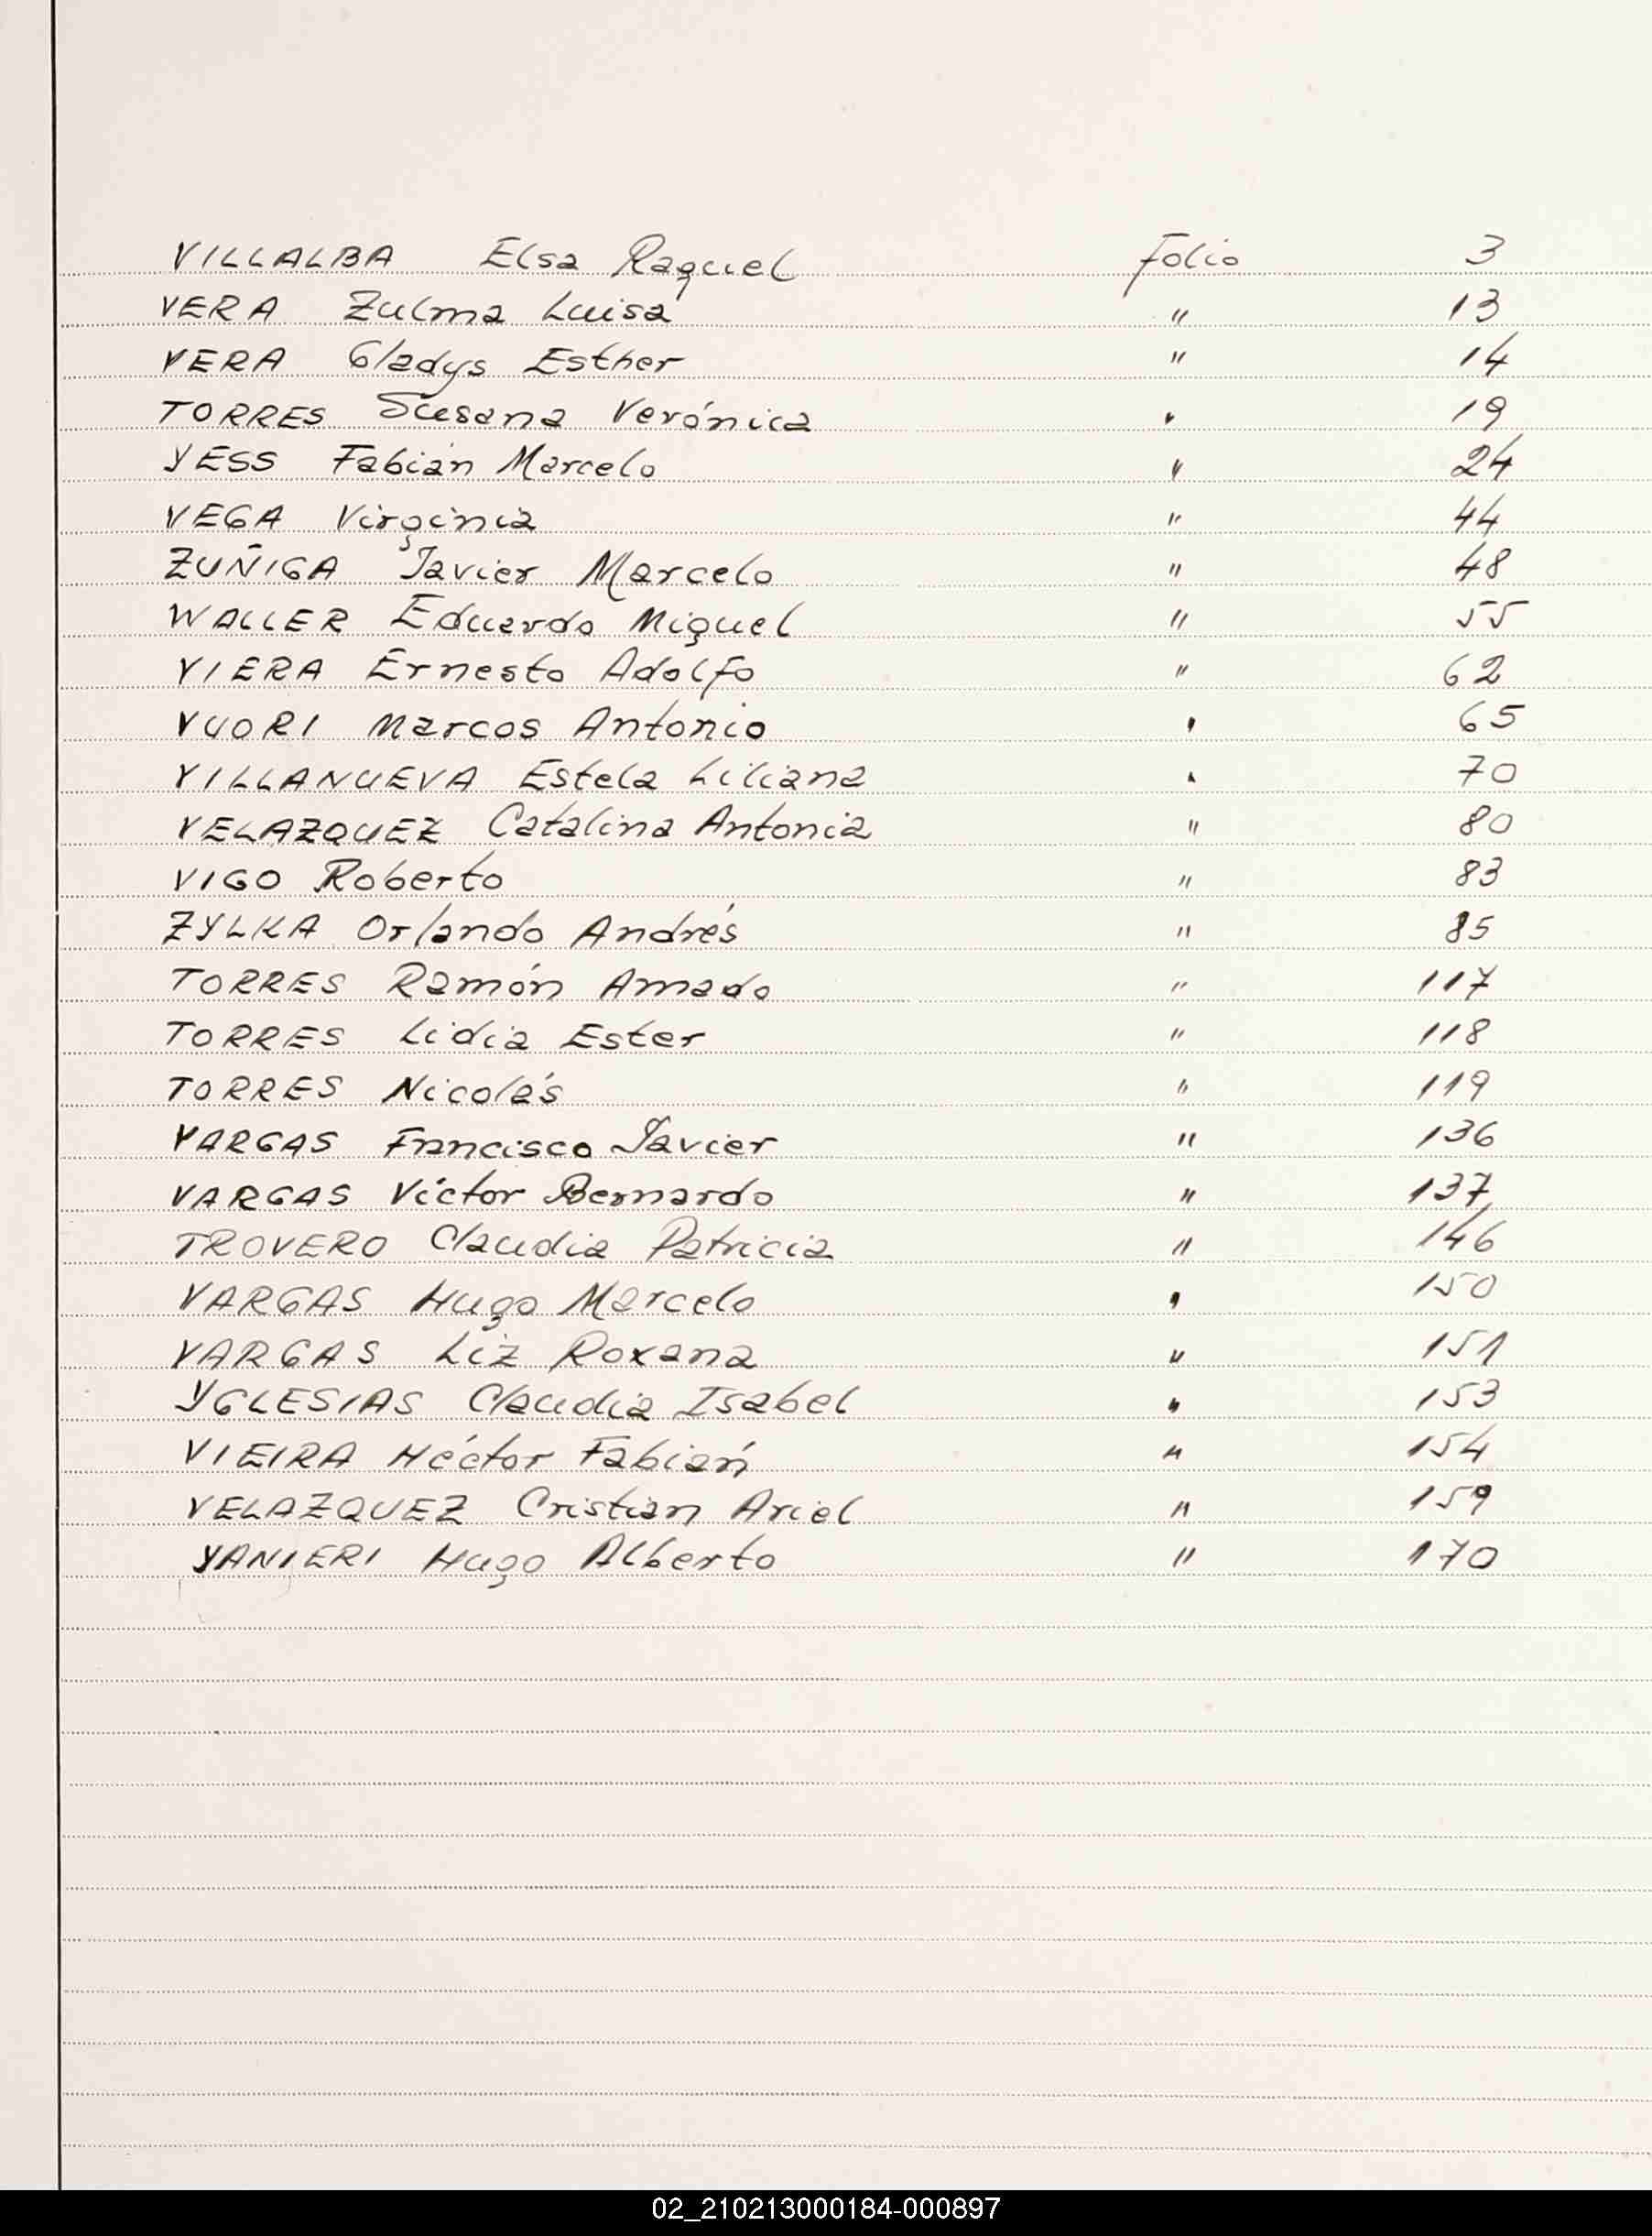 VILLALBA Elsa Raquel Folio 3
VERA Zulma Luisa " 13
VERA Gladys Esther " 14
TORRES Susana Verónica " 19
YESS Fabián Marcelo " 24
VEGA Virginia " 44
ZUÑIGA Javier Marcelo " 48
WALLER Eduardo Miguel " 55
VIERA Ernesto Adolfo " 62
VUORI Marcos Antonio " 65
VILLANUEVA Estela Liliana " 70
VELAZQUEZ Catalina Antonia " 80
VIGO Roberto " 83
ZYLKA Orlando Andrés " 85
TORRES Ramón Amado " 117
TORRES Lidia Ester " 118
TORRES Nicolás " 119
VARGAS Francisco Javier " 136
VARGAS Víctor Bernardo " 137
TROVERO Claudia Patricia " 146
VARGAS Hugo Marcelo " 150
VARGAS Liz Roxana " 151
YGLESIAS Claudia Isabel " 153
VIEIRA Héctor Fabián " 154
VELAZQUEZ Cristian Ariel " 159
YANIERI Hugo Alberto " 170
02_210213000184-000897